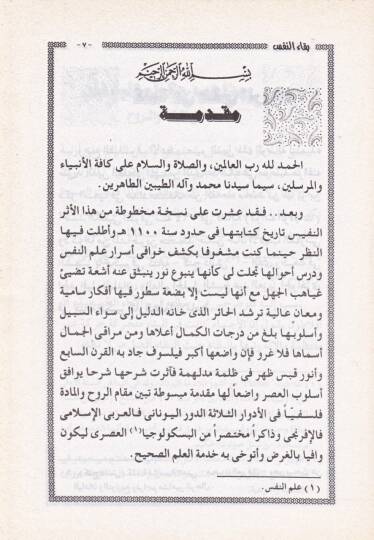 بقاء النفس
-٧-
بسم الله الرحمن الرحيم
مقدمة
الحمد لله رب العالمين، والصلاة والسلام على كافة الأنبياء
والمرسلين، سيما سيدنا محمد وآله الطيبين الطاهرين.
وبعد.. فقد عشرت على نسخة مخطوطة من هذا الأثر
النفيس تاريخ كتابتها فى حدود سنة ١١٠٠ هـ وأطلت فيها
النظر حينما كنت مشغوفا بكشف خوافى أسرار علم النفس
ودرس أحوالها تجلت لى كأنها ينبوع نور ينبثق عنه أشعة تضيئ
غياهب الجهل مع أنها ليست إلا بضعة سطور فيها أفكار سامية
ومعان عالية ترشد الحائر الذى خانه الدليل إلى سواء السبيل
وأسلوبها بلغ من درجات الكمال أعلاها ومن مراقى الجمال
أسماها فلا غرو فإن واضعها أكبر فيلسوف جاد به القرن السابع
وأنور قبس ظهر فى ظلمة مدلهمة فآثرت شرحها شرحا يوافق
أسلوب العصر واضعاً لها مقدمة مبسوطة تبين مقام الروح والمادة
فلسفيّاً فى الأدوار الثلاثة الدور اليونانى فالعربى الإسلامى
فالإفرنجى وذاكراً مختصراً من البسكولوجيا(١) العصرى ليكون
وافيا بالغرض وأتوخى به خدمة العلم الصحيح.
(١) علم النفس.